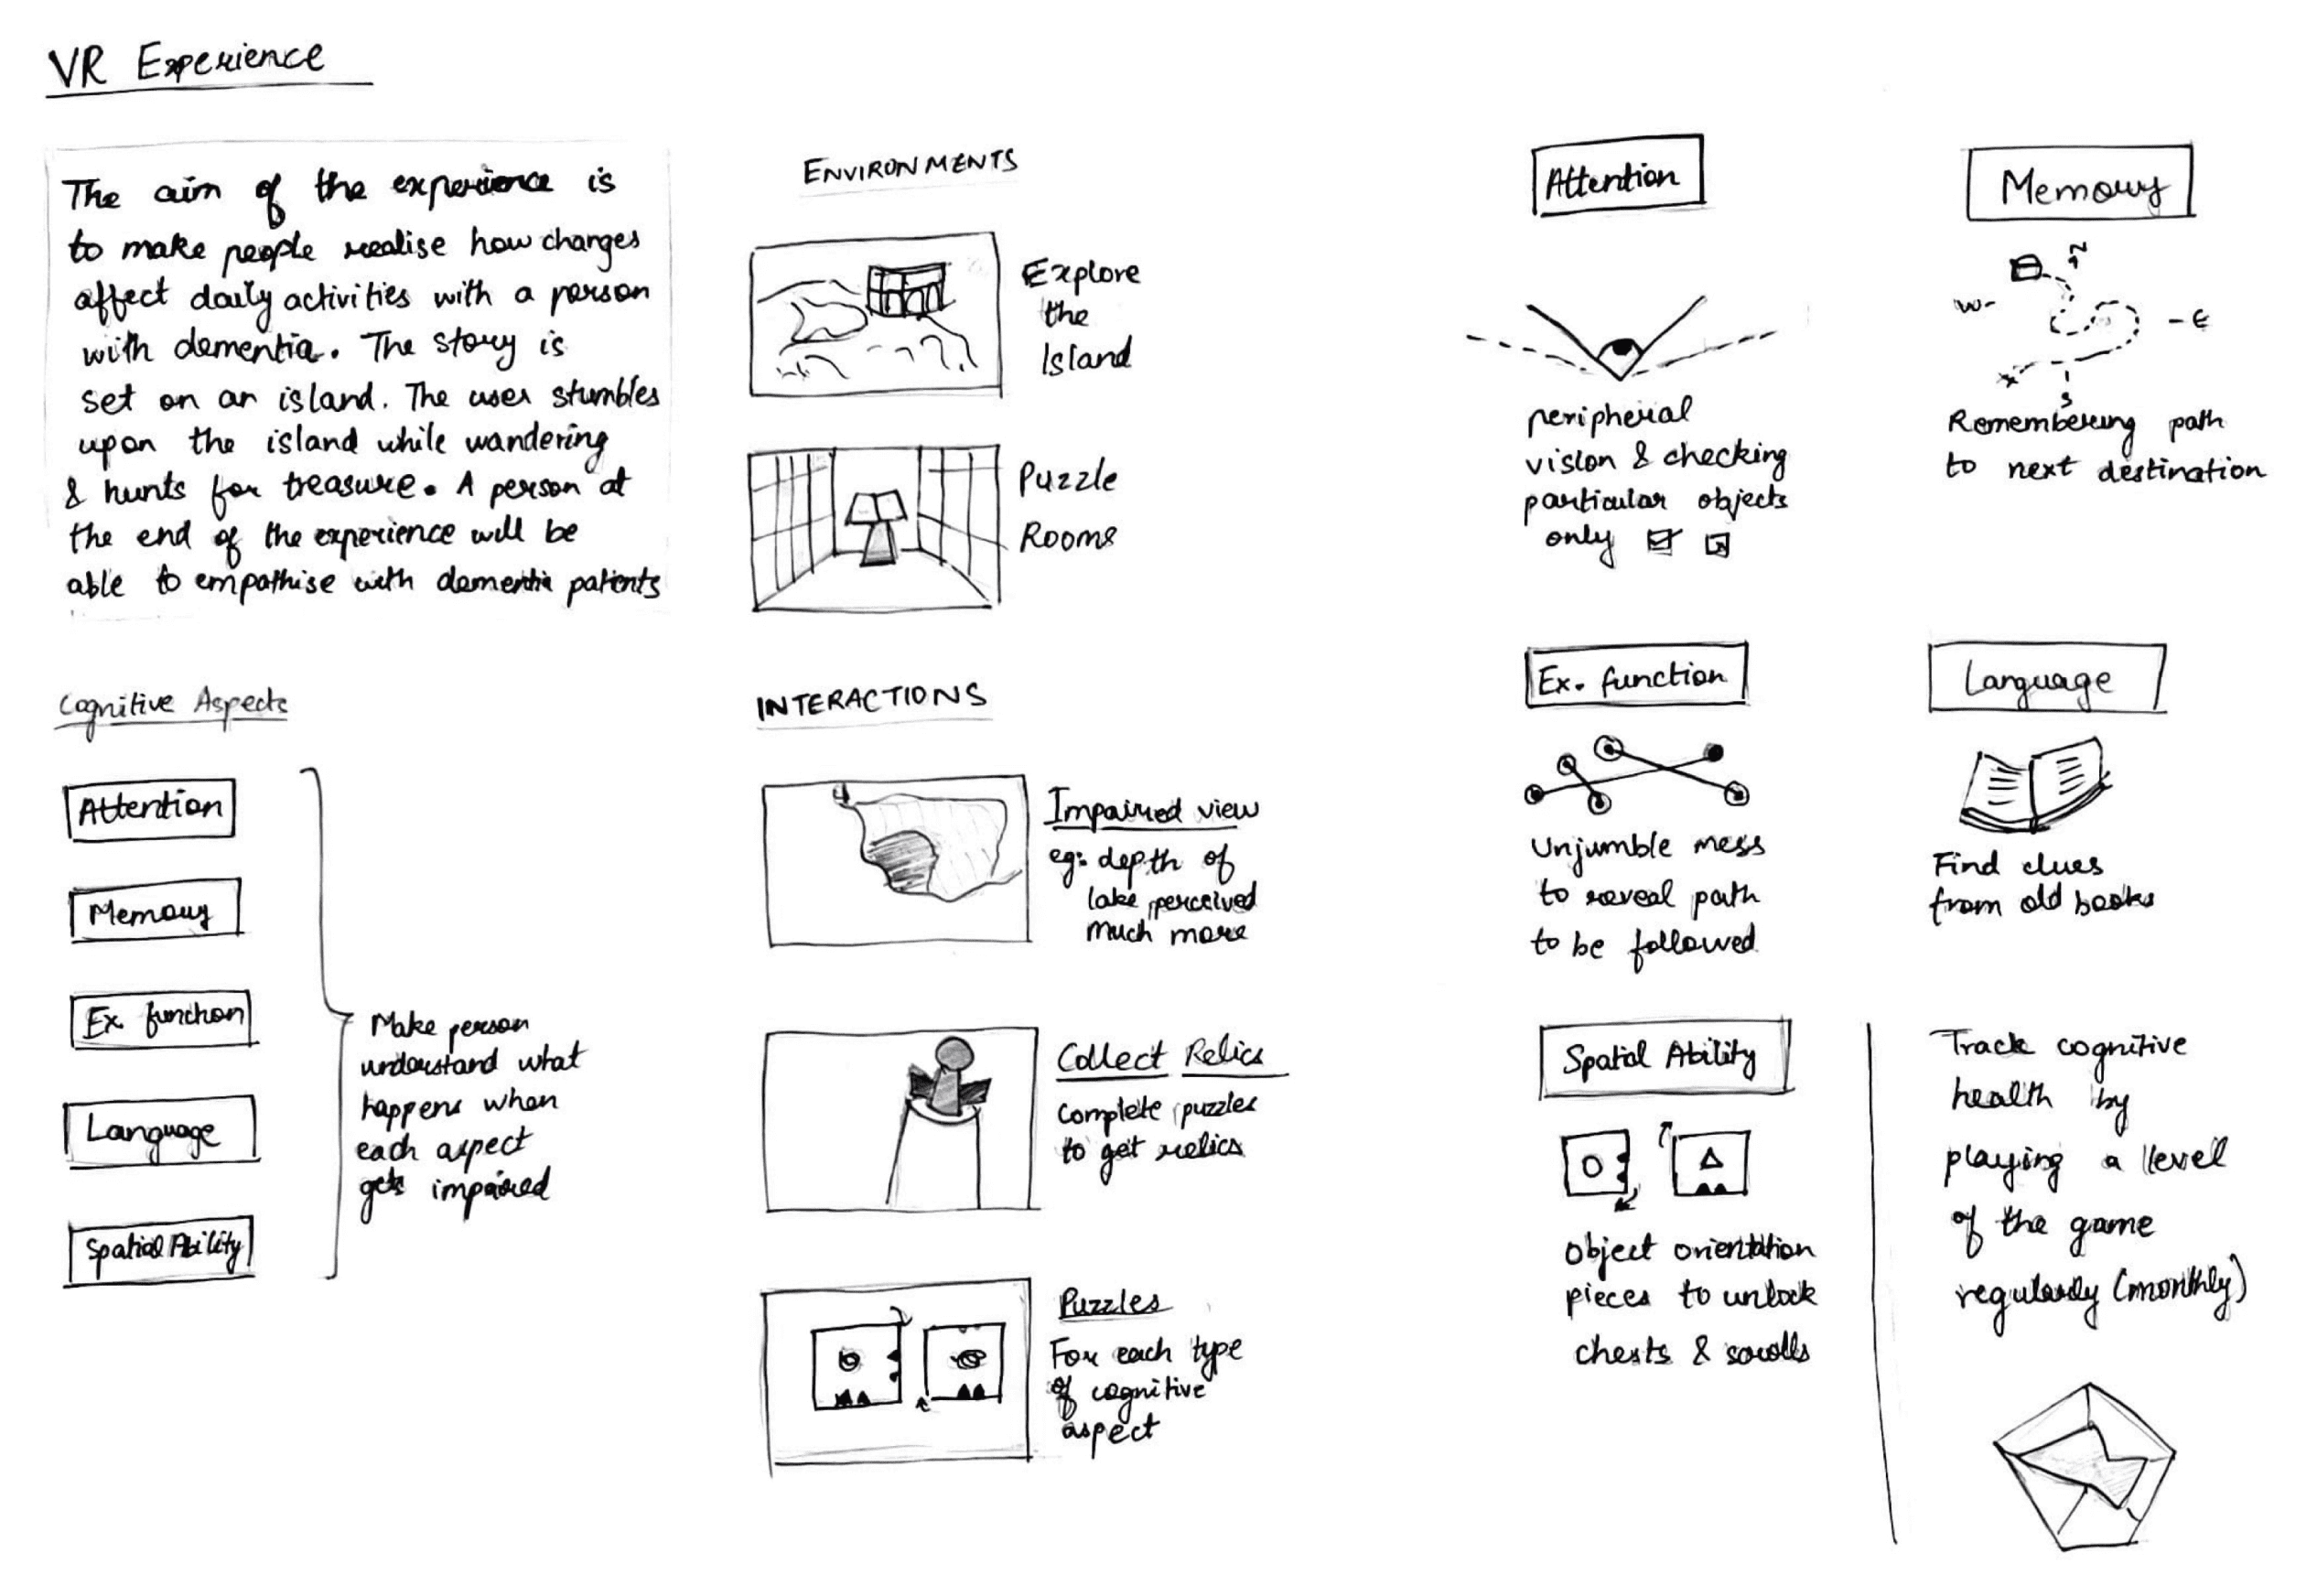 VR Experience
The aim of the experience is
to make people realise how changes
affect daily activities with a person
with dementia. The story is
set on an island. The user stumbles
upon the island while wandering
& hunts for treasure. A person at
the end of the experience will be
able to empathise with dementia patients
Cognitive Aspects
Attention
Memory
Ex. function
Language
Spatial Ability
Make person
understand what
happens when
each aspect
gets impaired
ENVIRONMENTS
Explore
the
Island
Puzzle
Rooms
INTERACTIONS
Impaired view
eg: depth of
lake perceived
much more
Collect Relics
Complete puzzles
to get relics
Puzzles
For each type
of cognitive
aspect
Attention
peripheral
vision & checking
particular objects
only
Memory
N
W-
- E
S
Remembering path
to next destination
Ex. function
Unjumble mess
to reveal path
to be followed
Language
Find clues
from old books
Spatial Ability
Object orientation
pieces to unlock
chests & scrolls
Track cognitive
health by
playing a level
of the game
regularly (monthly)